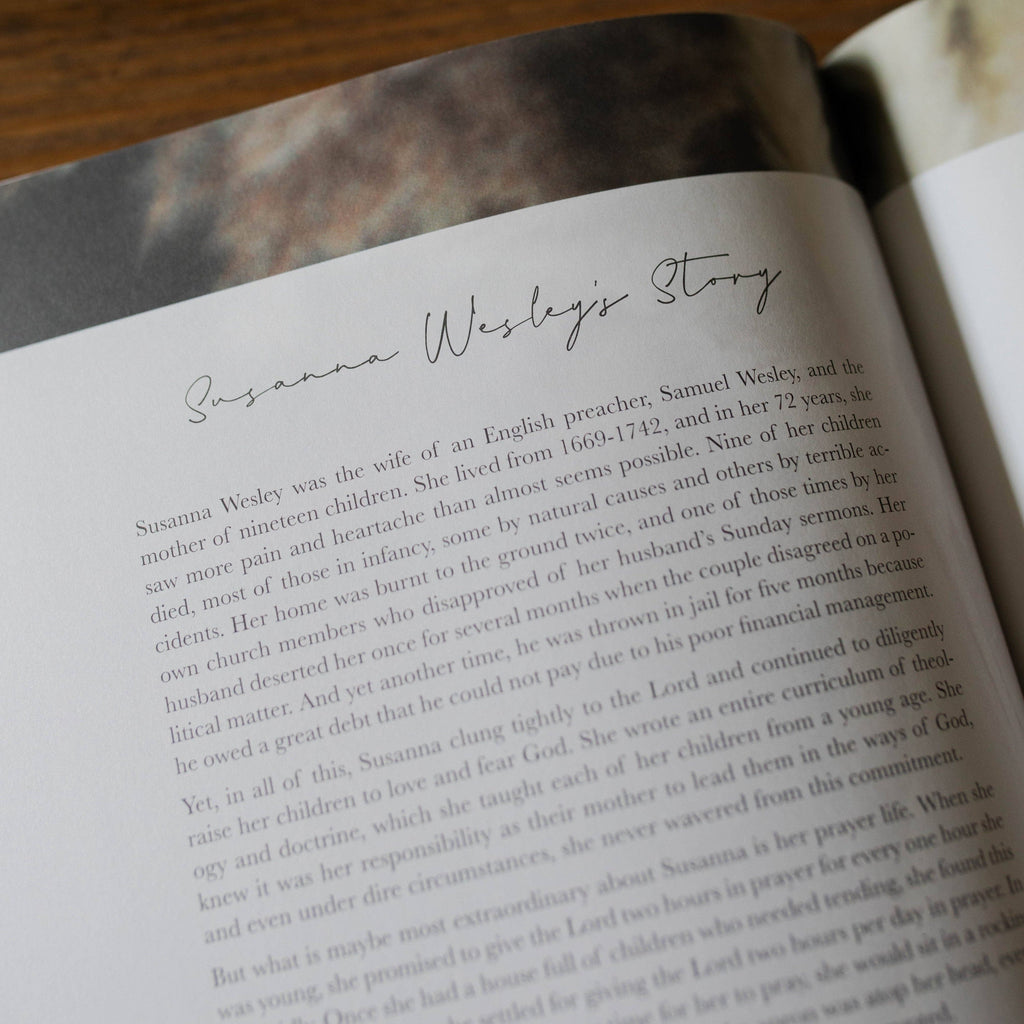 Susanna Wesley's Story
Susanna Wesley was the wife of an English preacher, Samuel Wesley, and the
mother of nineteen children. She lived from 1669-1742, and in her 72 years, she
saw more pain and heartache than almost seems possible. Nine of her children
died, most of those in infancy, some by natural causes and others by terrible ac-
cidents. Her home was burnt to the ground twice, and one of those times by her
own church members who disapproved of her husband's Sunday sermons. Her
husband deserted her once for several months when the couple disagreed on a po-
litical matter. And yet another time, he was thrown in jail for five months because
he owed a great debt that he could not pay due to his poor financial management.
Yet, in all of this, Susanna clung tightly to the Lord and continued to diligently
raise her children to love and fear God. She wrote an entire curriculum of theol-
ogy and doctrine, which she taught each of her children from a young age. She
knew it was her responsibility as their mother to lead them in the ways of God,
and even under dire circumstances, she never wavered from this commitment.
But what is maybe most extraordinary about Susanna is her prayer life. When she
was young, she promised to give the Lord two hours in prayer for every one hour she
Once she had a house full of children who needed tending, she found this
settled for giving the Lord two hours per day in prayer. In
time for her to pray, she would sit in a
apron was atop her head,